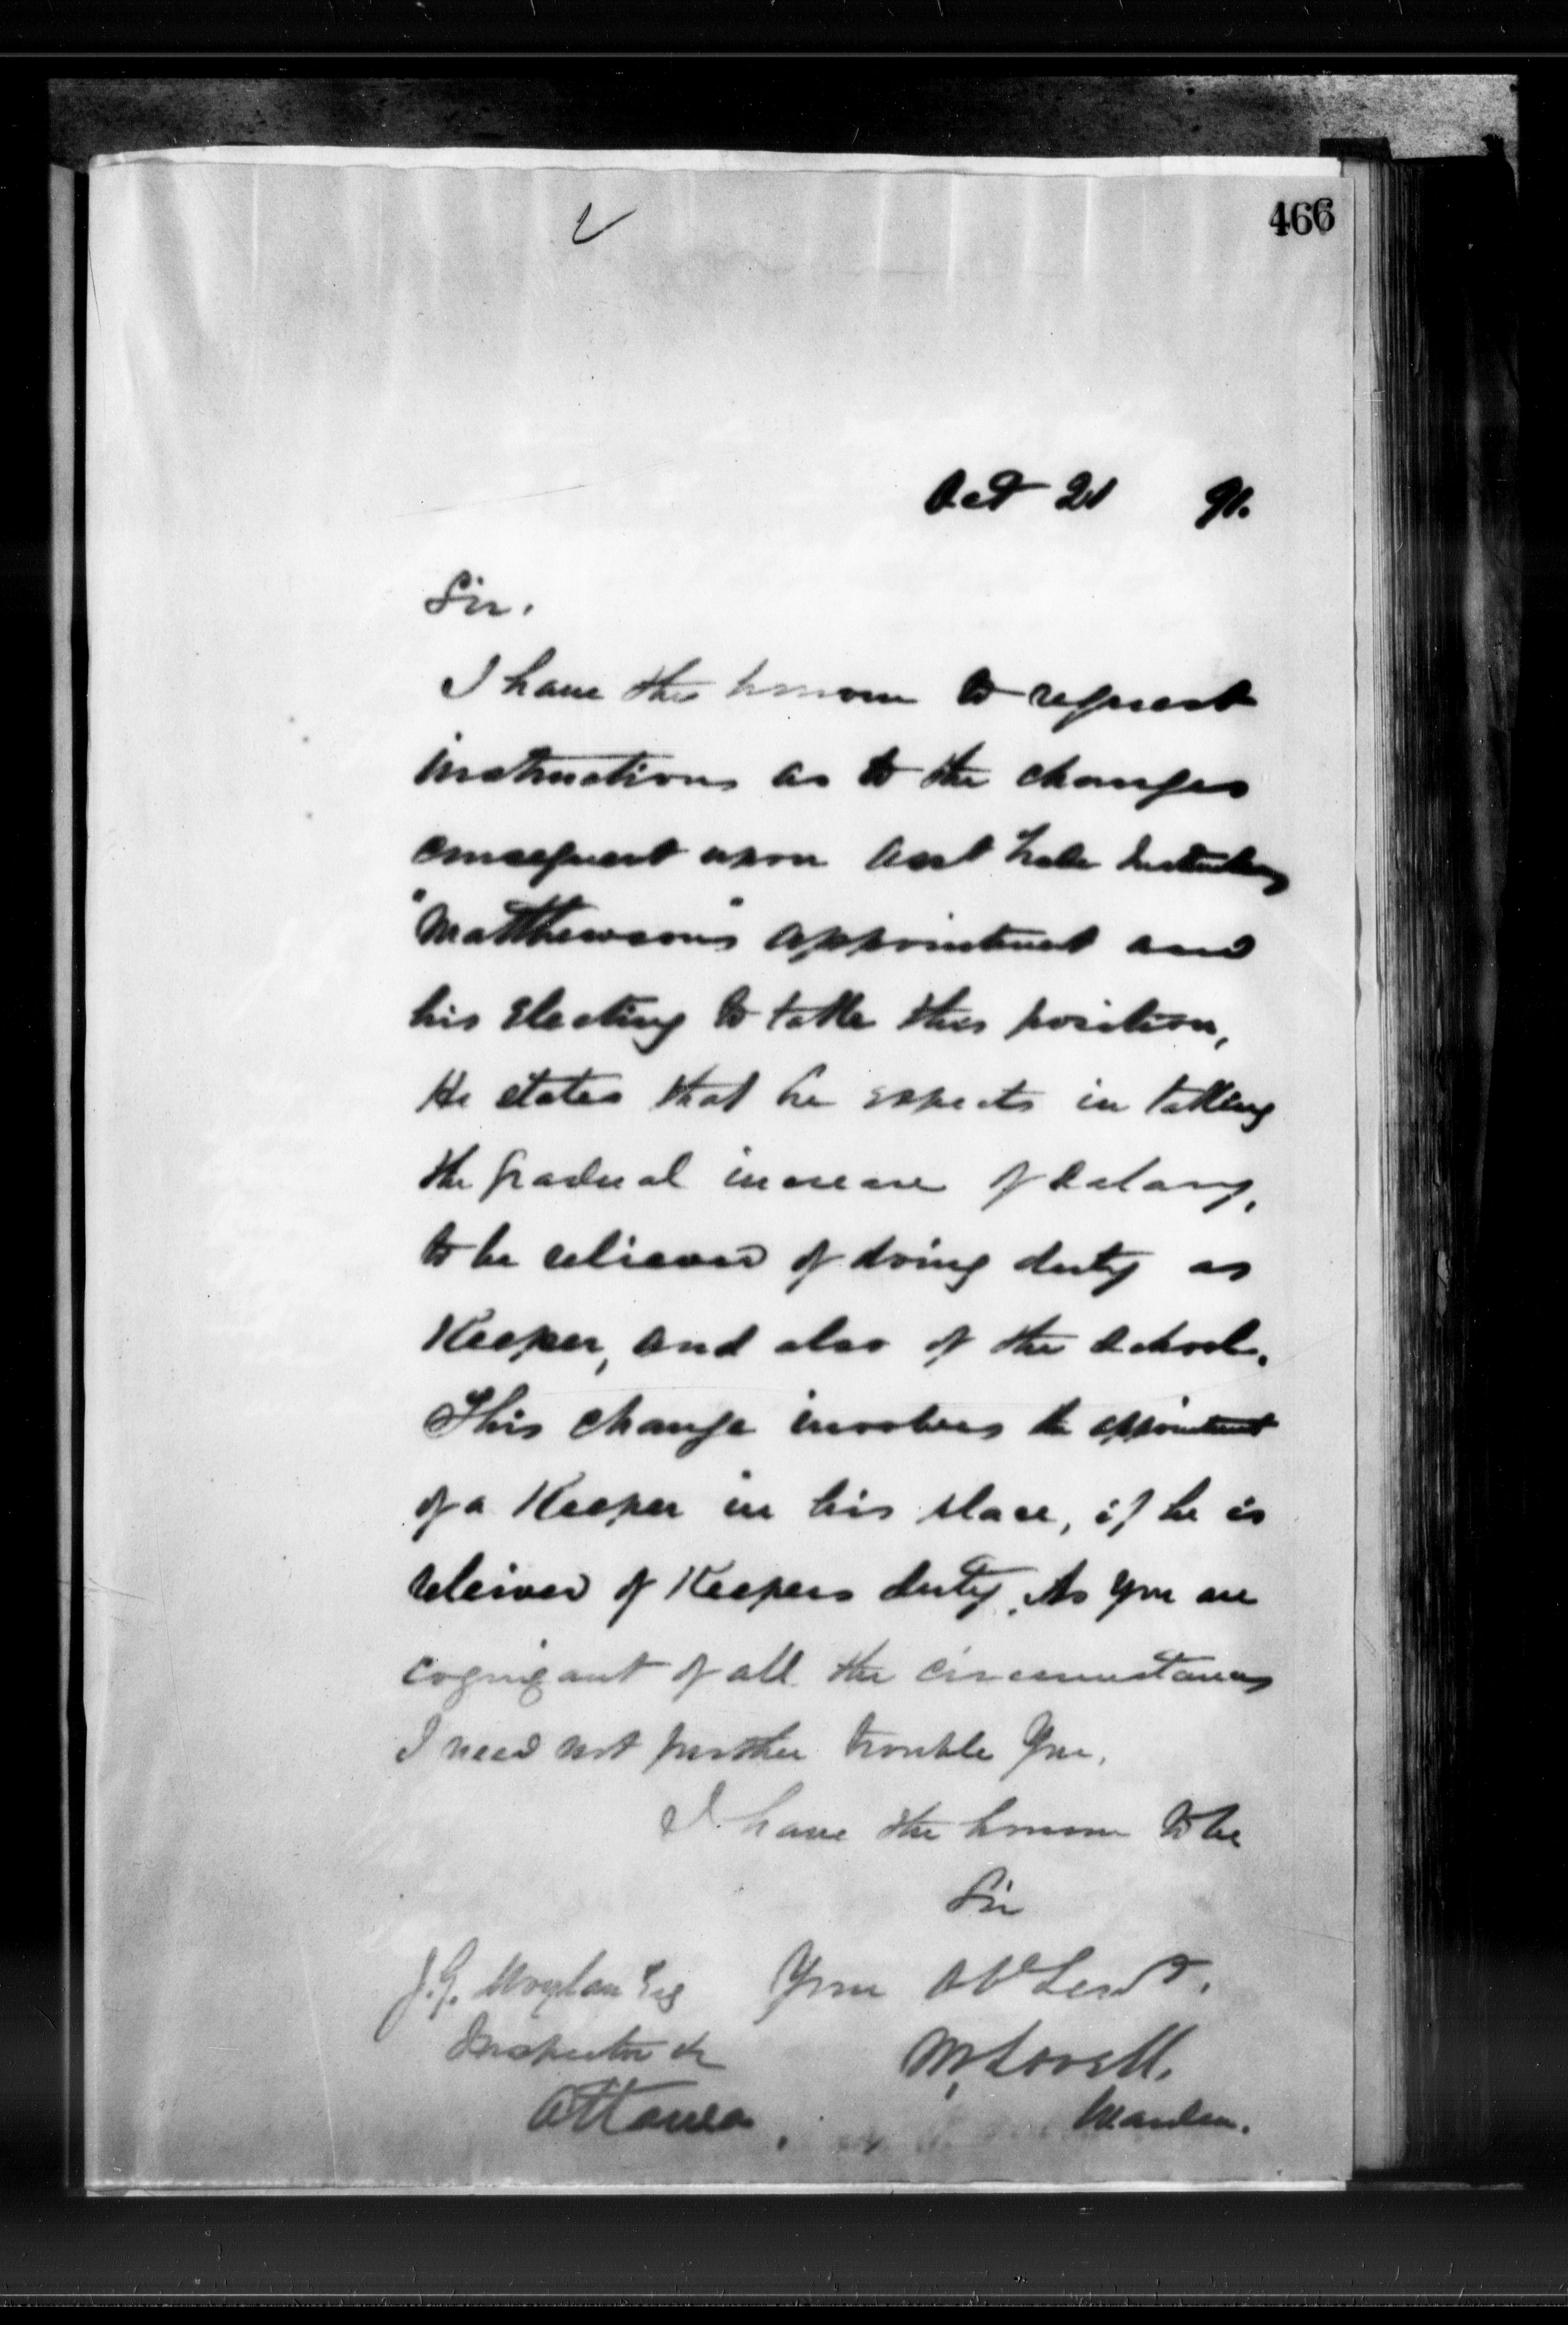 466
Oct 21 91.
Sir.
I have the honour to request
instructions as to the changes
consequent upon Asst Trade Instructor
"Matthewson's" appointment and
his electing to take this position,
He states that he expects in taking
the gradual increase of salary,
to be relieved of doing duty as
Keeper, and also of the school.
This change involves the appointment
of a Keeper in his place, if he is
releived of Keepers duty. As you are
cognizant of all the circumstances
I need not further trouble you.
I have the honour to be
Sir
J.G. Moylan Esq Your Ob Servt.
Inspector &c
Ottawa
Warden.